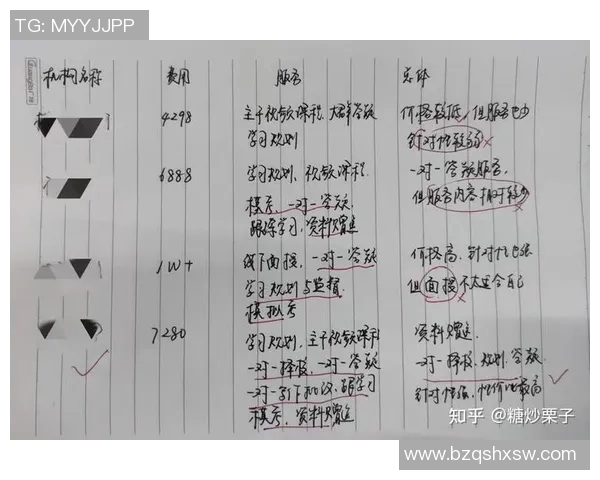 TG: MYYJJPP
机构名称 费用 服务 总体
4298 主干视频课程、大群答疑 价格较低，但服务也少
学习规划 针对性较弱
6888 学习规划、视频课程 一对一答疑服务，
模考、一对一答疑 但服务内容相对较少
跟踪学习、资料赠送
1W+ 线下面授、一对一答疑 价格高、针对性也强
学习规划与监督 但面授不太适合自己
模拟考
7280 学习规划、主干视频课程 资料赠送
一对一择校、一对一答疑 一对一择校、规划、答疑
一对一 学习 针对性强，性价比最高
模考、资料赠送
知乎 @糖炒栗子
www.bzqshxsw.com